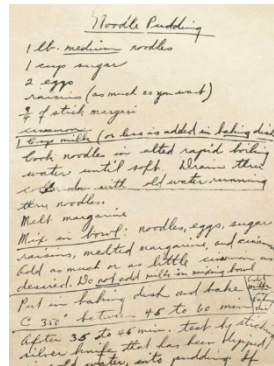 Noodle Pudding
1 lb. medium noodles
1 cup sugar
2 eggs
raisins (as much as you want)
of stick margari
cinnamon
1 Cup milk (or less is added in baking dish
Cook noodles in alted rapid boiling
water until soft. Drain thru
with old water running
thru noodles.
Melt margarine
Mix in bowl: noodles, eggs, sugar
raisins, melted margarine, and cinna
Add as much or as little cinnamon as
desired. Do not add milk in mixing bowl
Put in baking dish and bake
350° between 45 to 60 min
After 35 to 45 min. test by sticki
silver knife that has been dipped
old water, into pudding. If